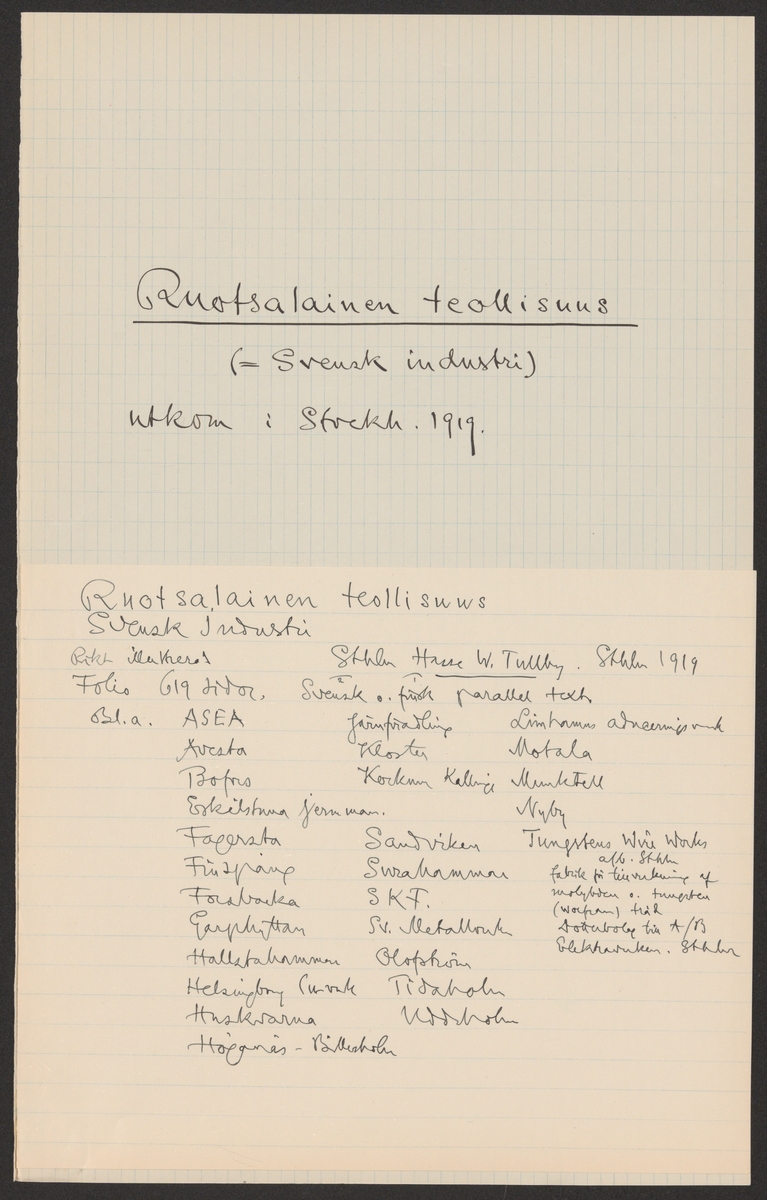 Ruotsalainen teollisuus
(= Svensk industri)
utkom i Stockh. 1919.
Ruotsalainen teollisuus
Svensk Industri
Rikt illustrerad Sthlm Hasse W. Tullby. Sthlm 1919
Folio 619 sidor. Svensk o. finsk parallel text
Bl.a. ASEA Järnförädling Limhamns aduceringsverk
Avesta Kloster Motala
Bofors Kockum Kallinge Munktell
Eskilstuna jernman. Nyby
Fagersta Sandviken Tungstens Wire Works
Finspång Surahammar afb. Sthlm
fabrik för tillverkning af
Forsbacka S.K.F. molybden o. tungsten
(wolfram) tråd
Garphyttan Sv. Metallverk Dotterbolag till A/B
Hallstahammar Olofström Elektraverken. Sthlm
Helsingborg Tidaholm
Huskvarna Uddeholm
Höganäs - Billesholm